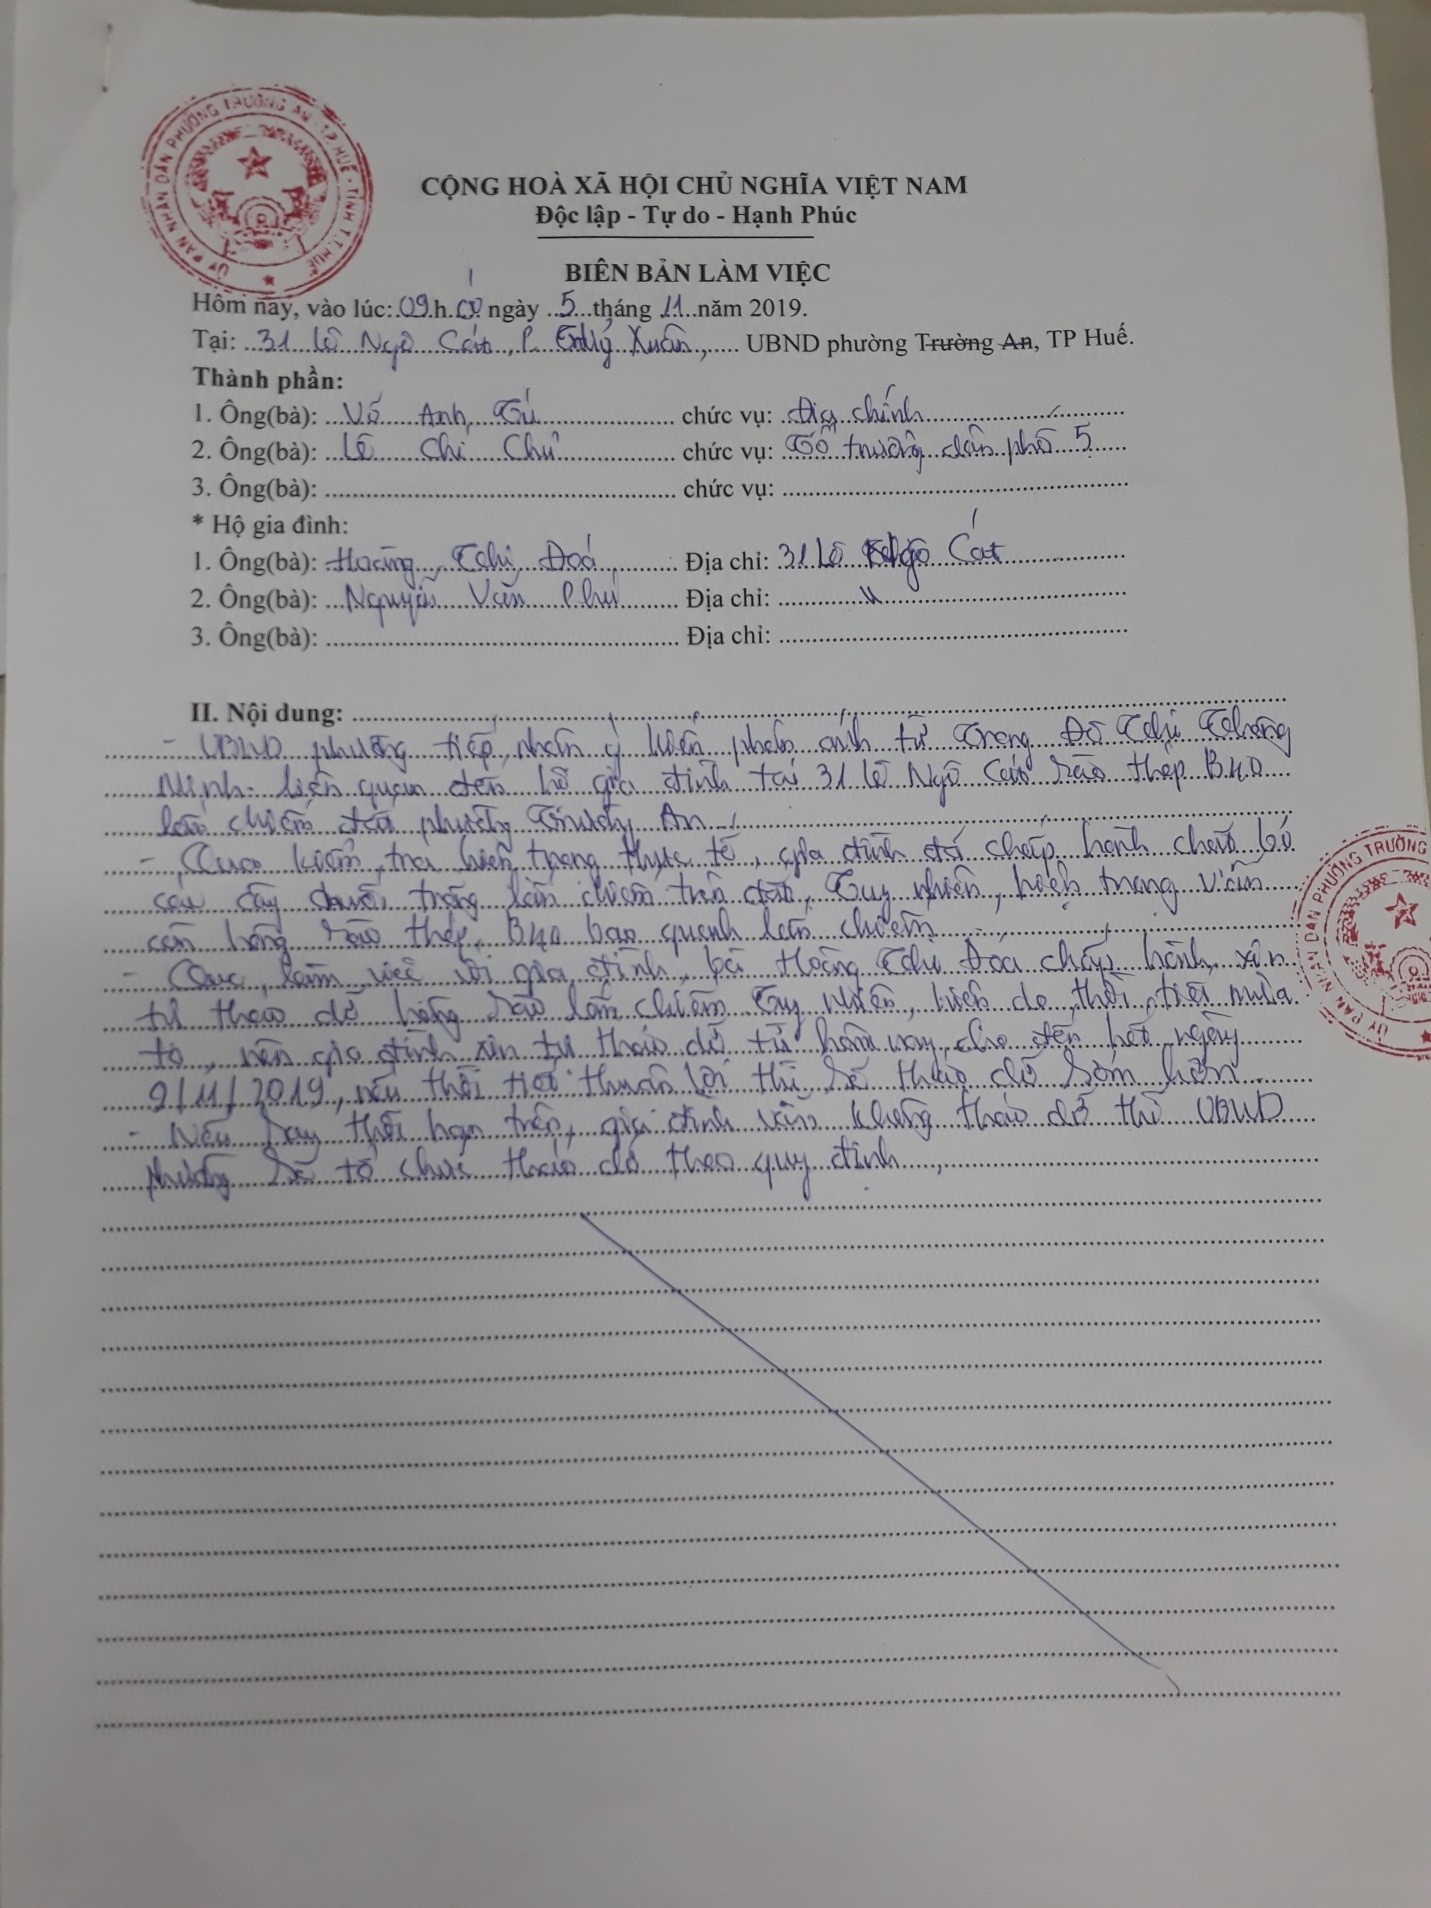 ỦY BAN NHÂN DÂN PHƯỜNG TRƯỜNG AN - TP. HUẾ - TỈNH T.T. HUẾ
CỘNG HOÀ XÃ HỘI CHỦ NGHĨA VIỆT NAM
Độc lập - Tự do - Hạnh Phúc
BIÊN BẢN LÀM VIỆC
Hôm nay, vào lúc: 09 h ngày 5 tháng 11 năm 2019.
Tại: 31 Lê Ngô Cát, P. Thủy Xuân, UBND phường Trường An, TP Huế.
Thành phần:
1. Ông(bà): Võ Anh Tú chức vụ: Địa chính
2. Ông(bà): Lê Chí Chủ chức vụ: Tổ trưởng dân phố 5
3. Ông(bà): chức vụ:
* Hộ gia đình:
1. Ông(bà): Hoàng Thị Đoá Địa chỉ: 31 Lê Ngô Cát
2. Ông(bà): Nguyễn Văn Phú Địa chỉ: "
3. Ông(bà): Địa chỉ:
II. Nội dung:
- UBND phường tiếp nhận ý kiến phản ánh từ Trang Đô Thị Thông
Minh liên quan đến hộ gia đình tại 31 Lê Ngô Cát rào thép B40
lấn chiếm đất phường Trường An
- Qua kiểm tra hiện trạng thực tế, gia đình đã chấp hành chặt bỏ
cây chuối trồng lấn chiếm trên đất, Tuy nhiên, hiện trạng vẫn
còn hàng rào thép B40 bao quanh lấn chiếm
- Qua làm việc với gia đình, bà Hoàng Thị Đoá chấp hành xin
tự tháo dỡ hàng rào lấn chiếm Tuy nhiên, hiện do thời tiết mưa
to, nên gia đình xin tự tháo dỡ từ hôm nay cho đến hết ngày
9/11/2019, nếu thời tiết thuận lợi thì sẽ tháo dỡ sớm hơn
- Nếu sau thời hạn trên, gia đình vẫn không tháo dỡ thì UBND
phường sẽ tổ chức tháo dỡ theo quy định
ỦY BAN NHÂN DÂN PHƯỜNG TRƯỜNG